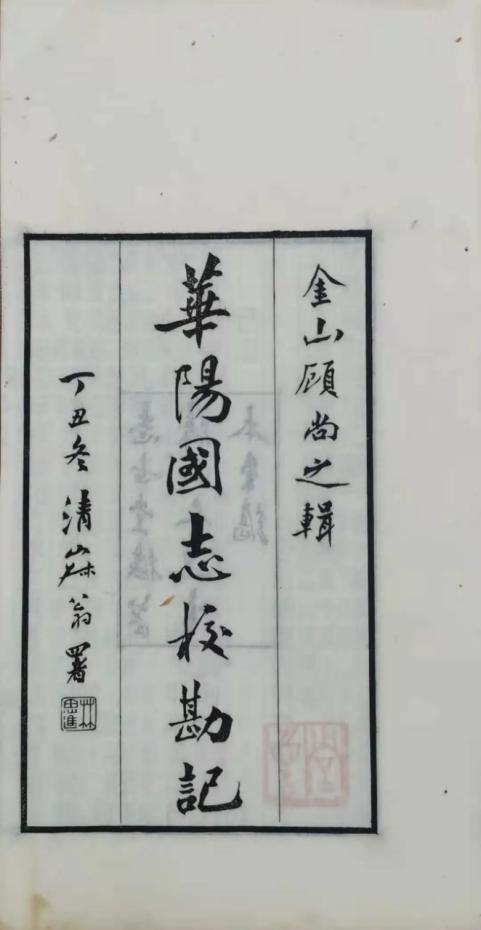 金山顧尚之輯
華陽國志校勘記
丁丑冬清寂翁署
林思進